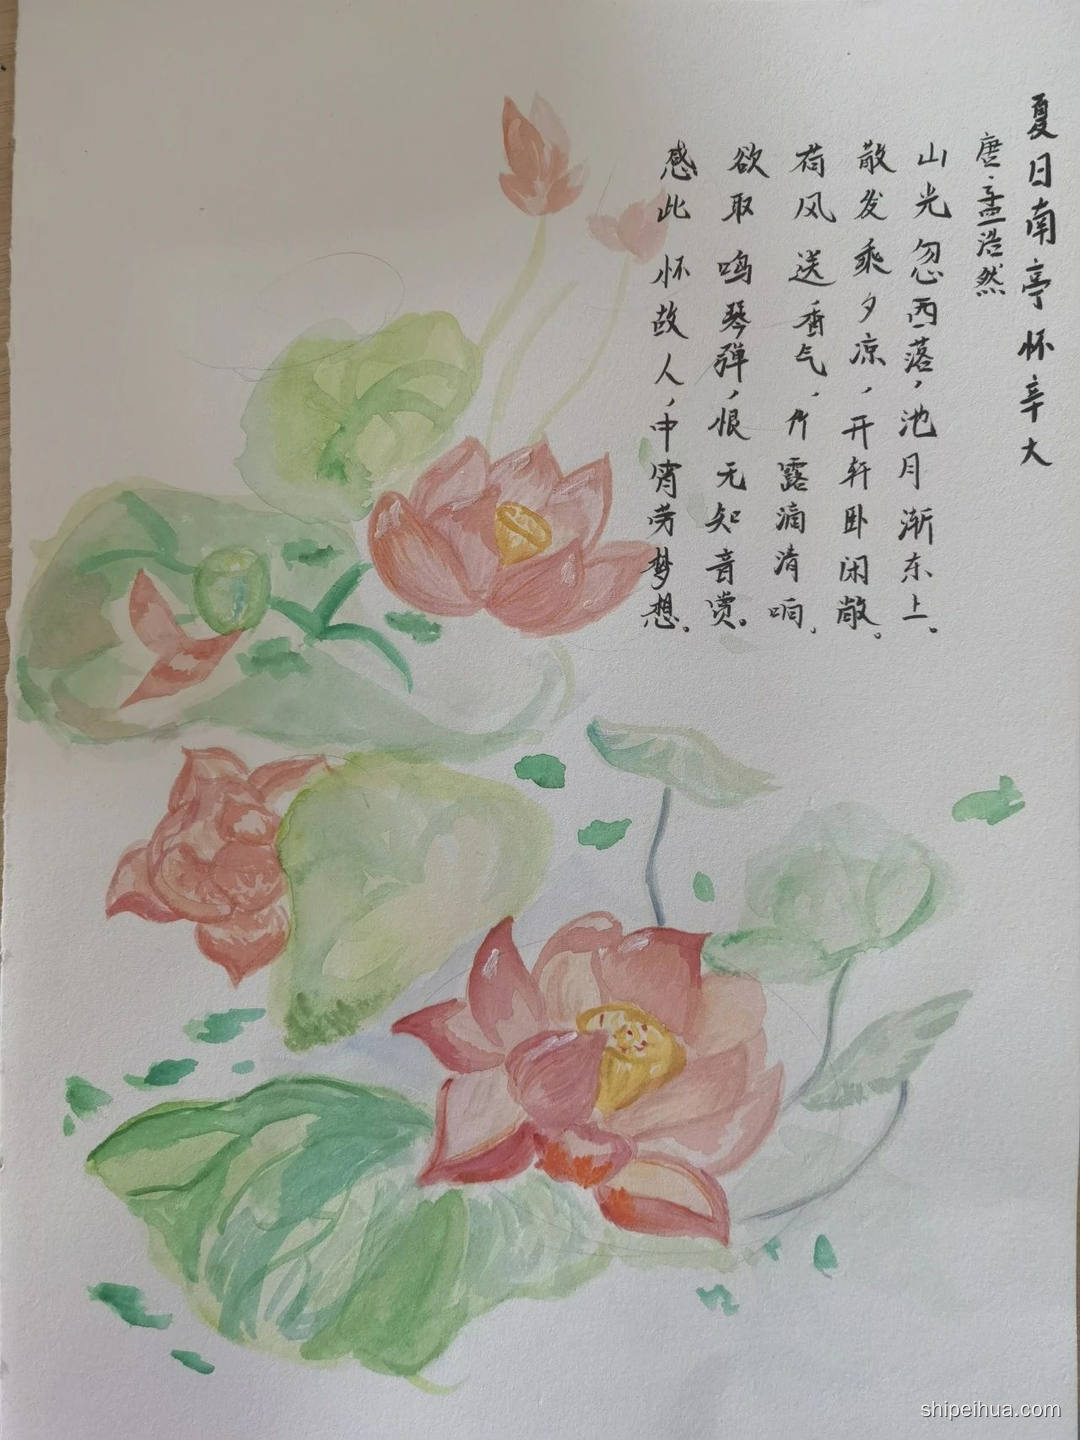 夏日南亭怀辛大
唐·孟浩然
山光忽西落，池月渐东上。
散发乘夕凉，开轩卧闲敞。
荷风送香气，竹露滴清响。
欲取鸣琴弹，恨无知音赏。
感此怀故人，中宵劳梦想。
shipeihua.com